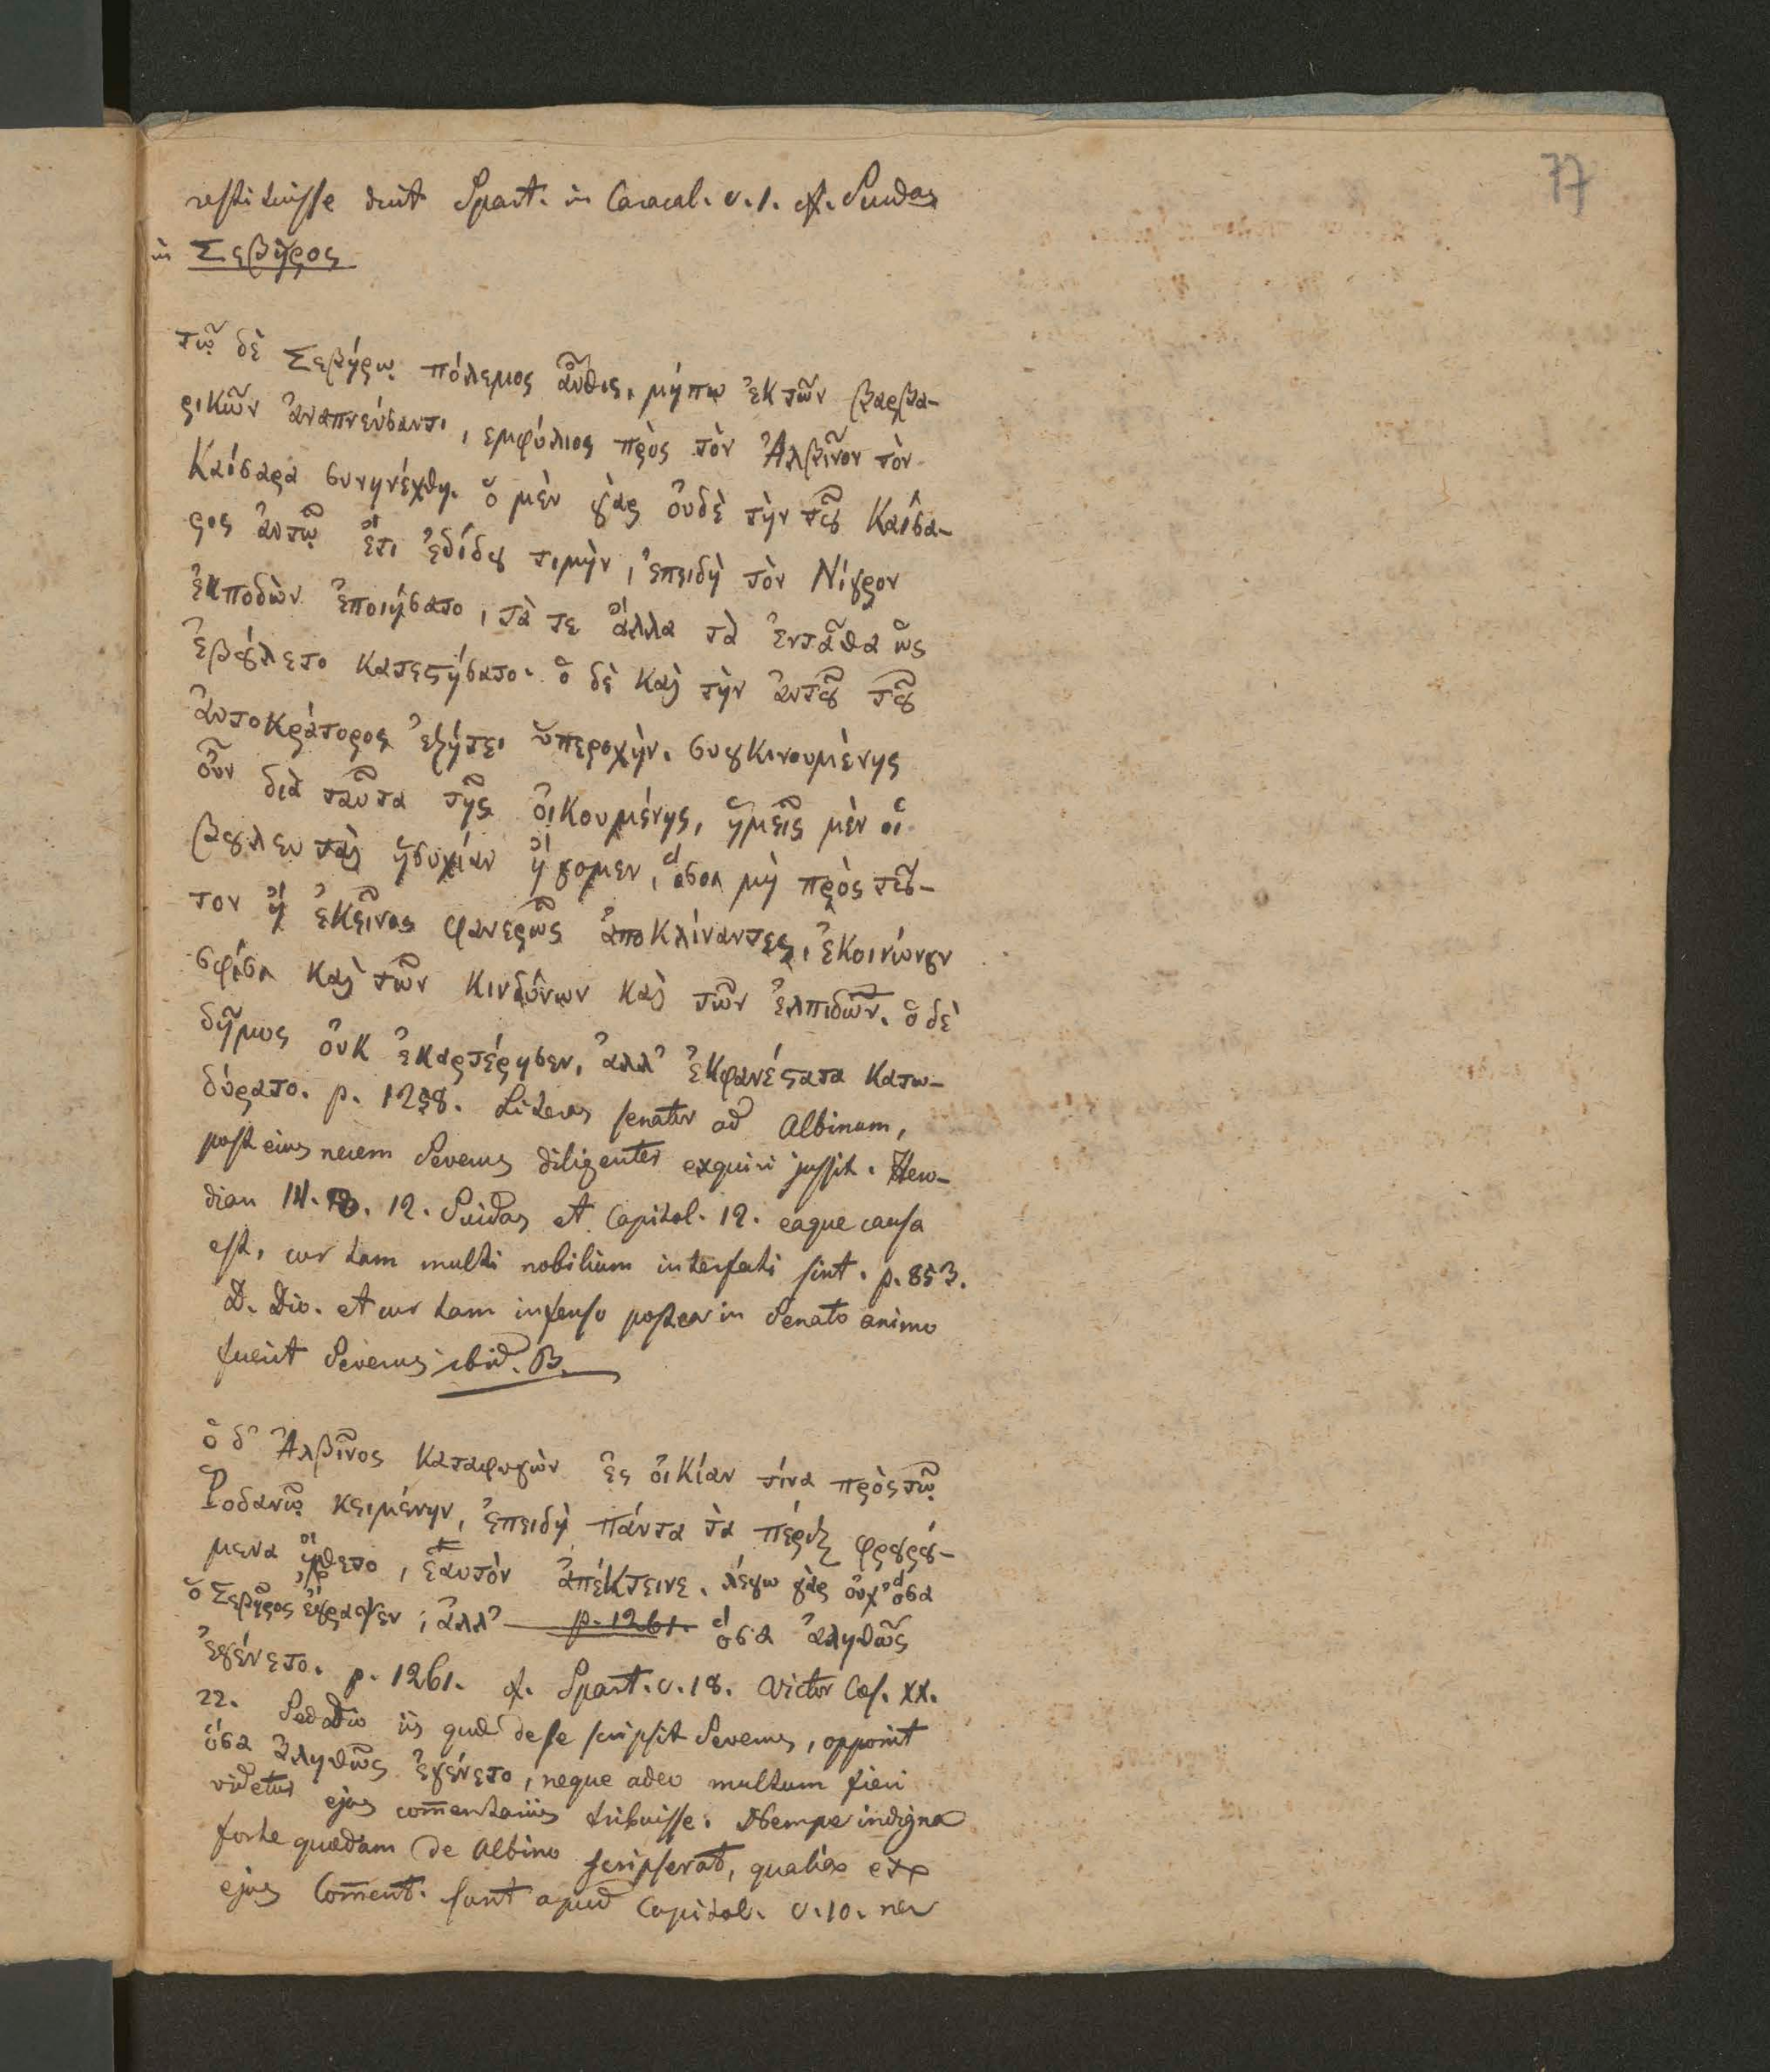 77
restituisse dicit Spart. in Caracal. c. 1. cf. Suidas
in Σεβῆρος
τῷ δὲ Σεβήρῳ πόλεμος ἆυθις, μήπω ἐκ τῶν βαρβα-
ρικῶν ἀναπνεύσαντι, εμφύλιος πρὸς τὸν Ἀλβῖνον τὸν
Καίσαρα συνηνέχθη. ὁ μὲν γὰρ ὀυδὲ τὴν τοῦ Καίσα-
ρος ἀυτῷ ἔτι ἐδίδου τιμὴν, ἐπειδὴ τὸν Νίγρον
ἐκποδὼν ἐποιήσατο, τὰ τε ἄλλα τὰ ἐνταῦθα ὡς
ἐβούλετο κατεστήσατο· ὁ δὲ καὶ τὴν ἀυτοῦ τοῦ
ἀυτοκράτορος ἐζήτει ὑπεροχὴν. συγκινουμένης
οὖν διὰ ταῦτα τῆς ὀικουμένης, ἡμεῖς μὲν οἱ
βουλευταὶ ἡσυχίαν ἤγομεν, ὅσοι μὴ πρὸς τοῦ-
τον ἢ ἐκεῖνον φανερῶς ἀποκλίναντες, ἐκοινώνουν
σφίσι καὶ τῶν κινδύνων καὶ τῶν ἐλπιδῶν. ὁ δὲ
δῆμος ὀυκ ἐκαρτέρησεν, ἀλλ' ἐκφανέστατα κατω-
δύρατο. p. 1258. Literas senatus ad Albinum,
post eius necem Severus diligenter exquiri jussit. Hero-
dian III. 8. 12. Suidas et Capitol. 12. eaque causa
est, cur tam multi nobilium interfecti sint. p. 853.
D. Dio. et cur tam infenso postea in Senatu animo
fuerit Severus ibid. B.
ὁ δ' Ἀλβῖνος καταφυγὼν ἐς ὀικίαν τίνα πρὸς τῷ
Ῥοδανῷ κειμένην, ἐπειδὴ πάντα τα πέριξ φρουρού-
μενα ᾔσθετο, ἑαυτὸν ἀπέκτεινε. λέγω γὰρ ὀυχ' ὅσα
ὁ Σεβῆρος ἔγραψεν, ἀλλ' p. 1261. ὅσα ἀληθῶς
ἐγένετο. p. 1261. cf. Spart. c. 18. Victor Caes. XX.
22. Sed Dio iis quae de se scripsit Severus, opponit
ὅσα ἀληθῶς ἐγένετο, neque adeo multum fieri
videtur ejus com̄entariis tribuisse. Nempe indigna
forte quaedam de Albino scripserat, qualia ex
ejus Com̄ent. sunt apud Capitol. c. 10. nec